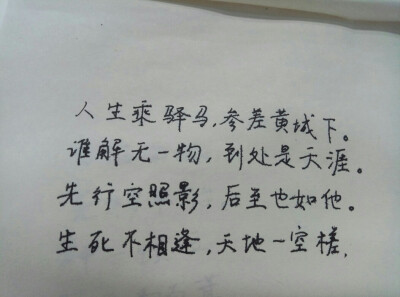 人生乘驿马,参差黄城下。
谁解无一物,到处是天涯。
先行空照影,后至也如他。
生死不相逢,天地一空槎.